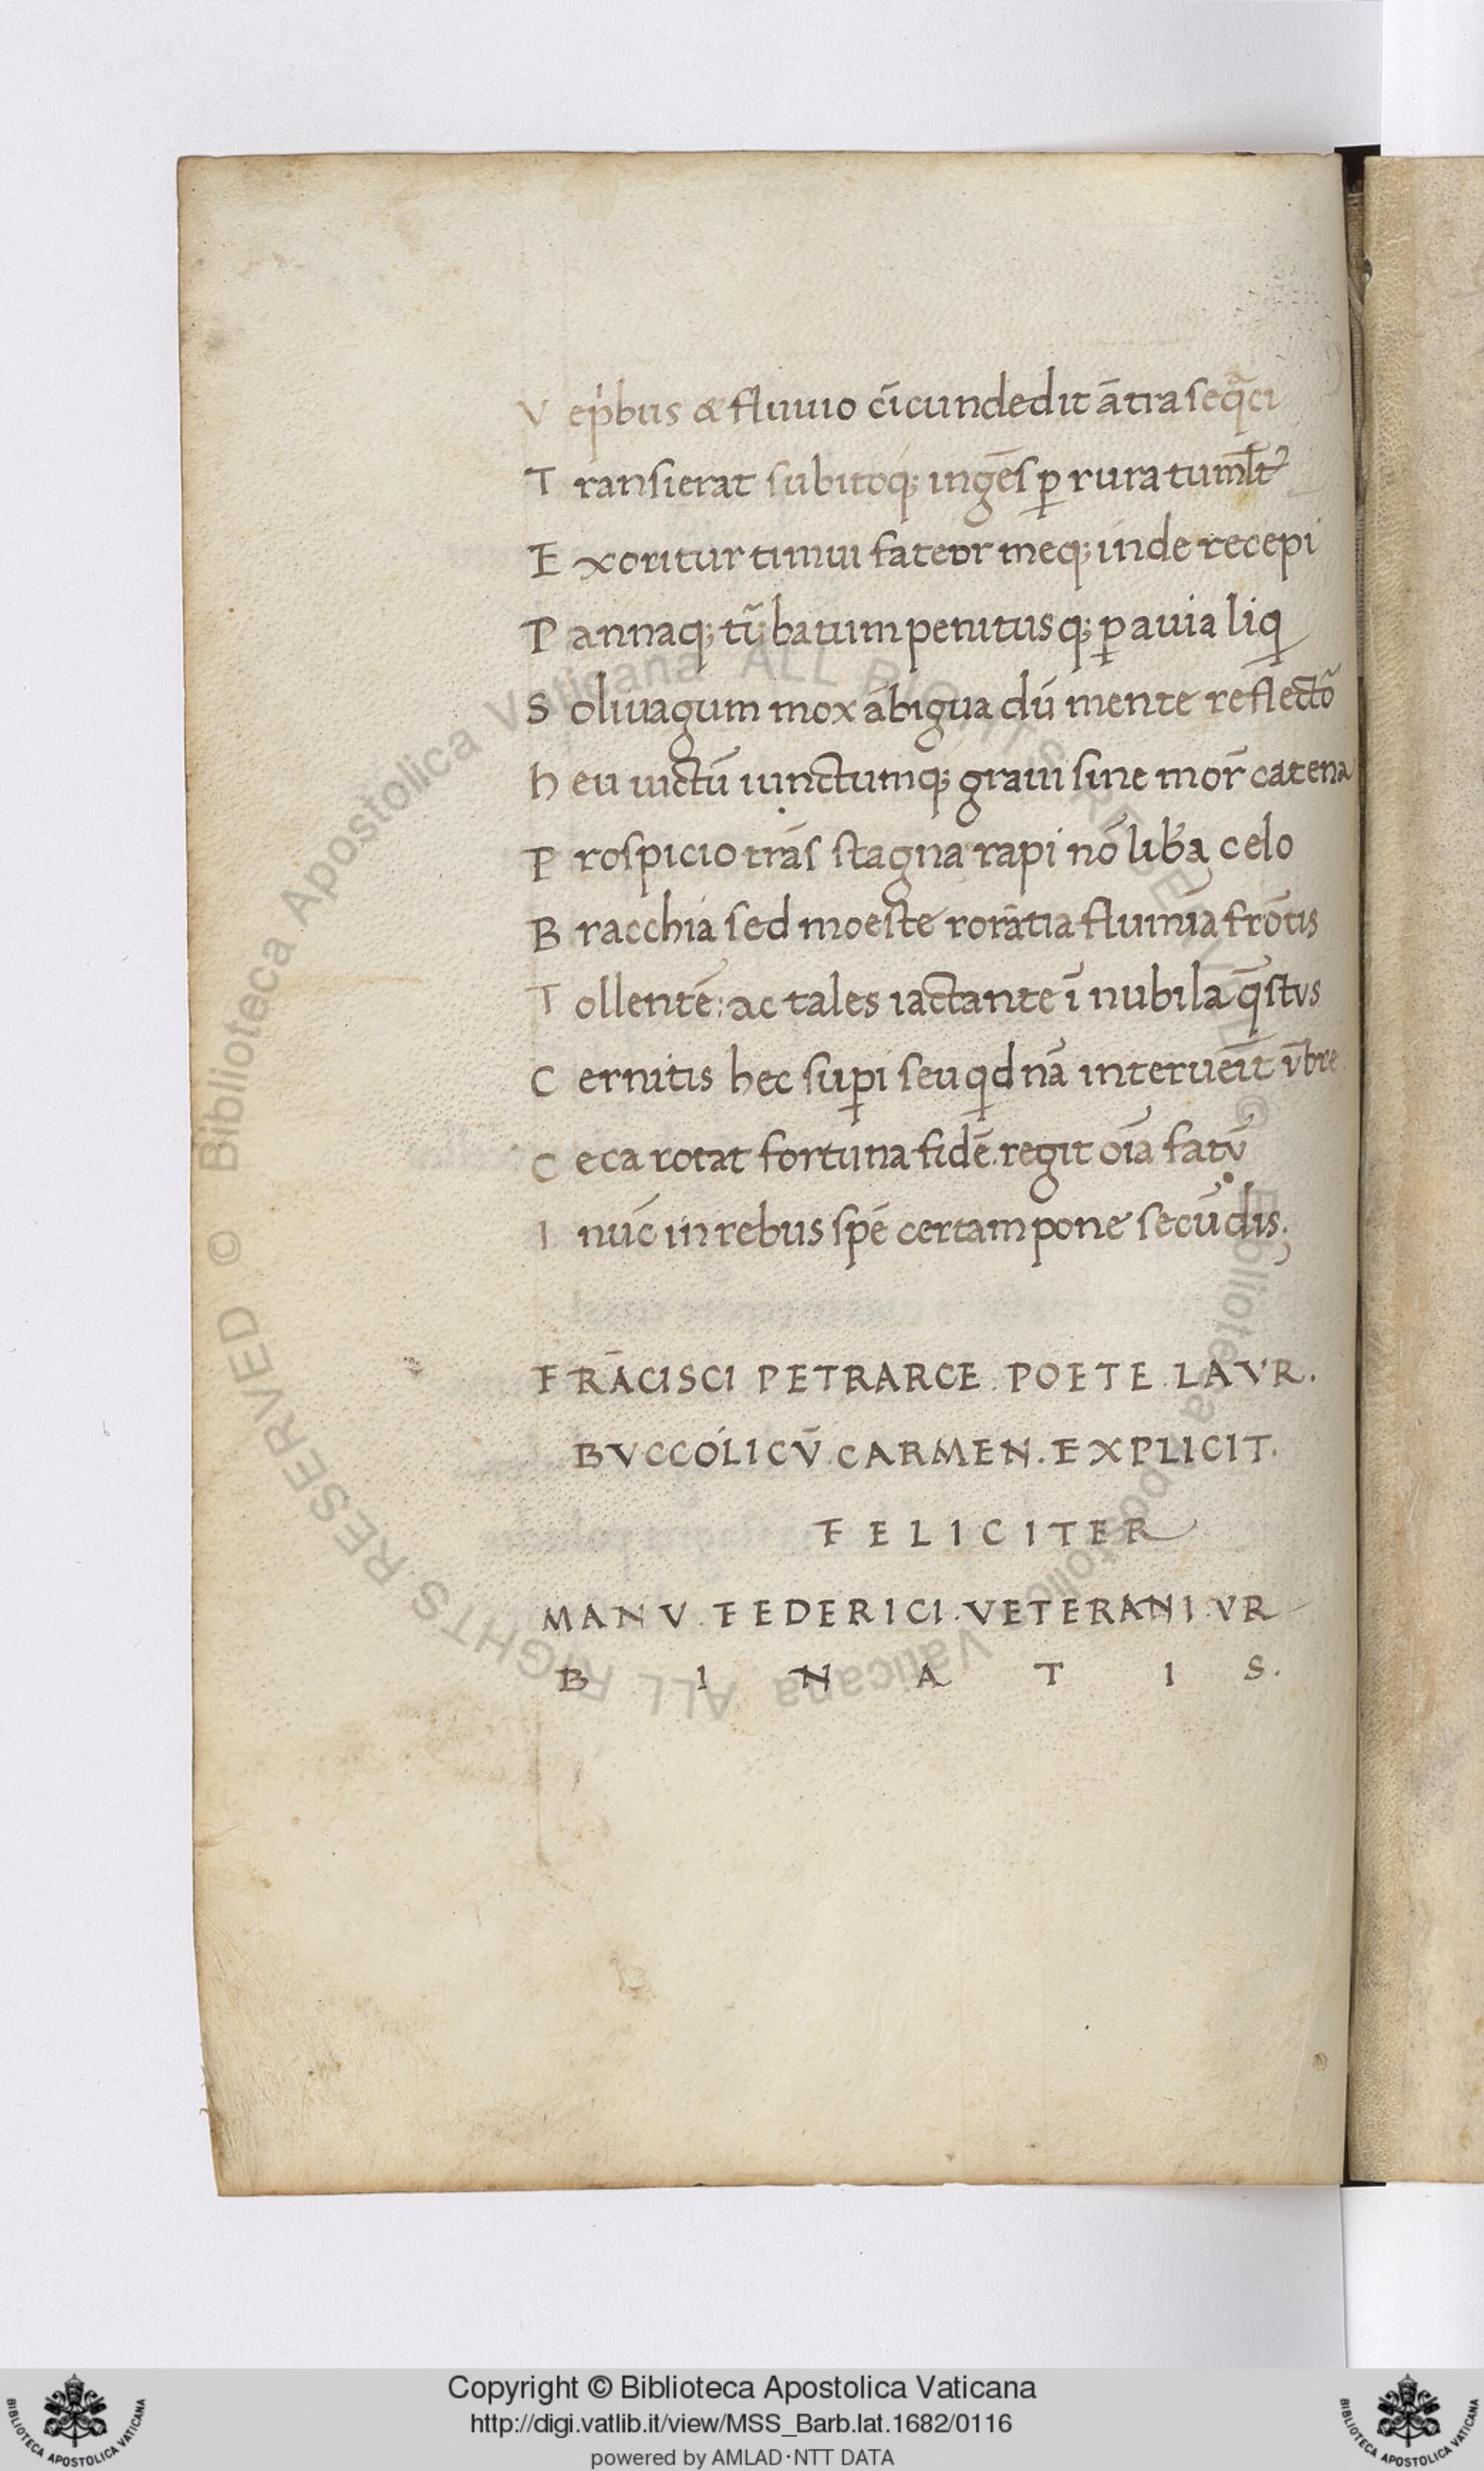 V ep̍bus & fluuio cı̄cundedit ātra seq̄ci
T ransierat subitoq; ingēs ꝑ rura tumĺt᷑
E xoritur timui fateor meq; inde recepi
P annaq; tu᷑batum penitusq; ꝑ auia liq
S oliuagum mox ābigua dū mente reflecto᷑
h eu uictū iunctumq; graui sine mor̄ catena
P rospicio trās stagna rapi nō lib̄a celo
B racchia sed moeste rorātia flumīa frōtis
T ollentē: ac tales iactante ī nubila q̄stvs
C ernitis hec suꝑi seu qd nā interueīt v̄bre
C eca rotat fortuna fidē. regit oīa fatv̄
I nūc in rebus spē certam pone secūdis;
FRĀCISCI PETRARCE. POETE LAVR.
BVCCOLICV̄. CARMEN. EXPLICIT.
FELICITER
MANV. FEDERICI. VETERANI. VR
BINATIS.
Copyright © Biblioteca Apostolica Vaticana
http://digi.vatlib.it/view/MSS_Barb.lat.1682/0116
powered by AMLAD·NTT DATA
© Biblioteca Apostolica Vaticana ALL RIGHTS RESERVED
© Biblioteca Apostolica Vaticana ALL RIGHTS RESERVED
BIBLIOTECA APOSTOLICA VATICANA
BIBLIOTECA APOSTOLICA VATICANA